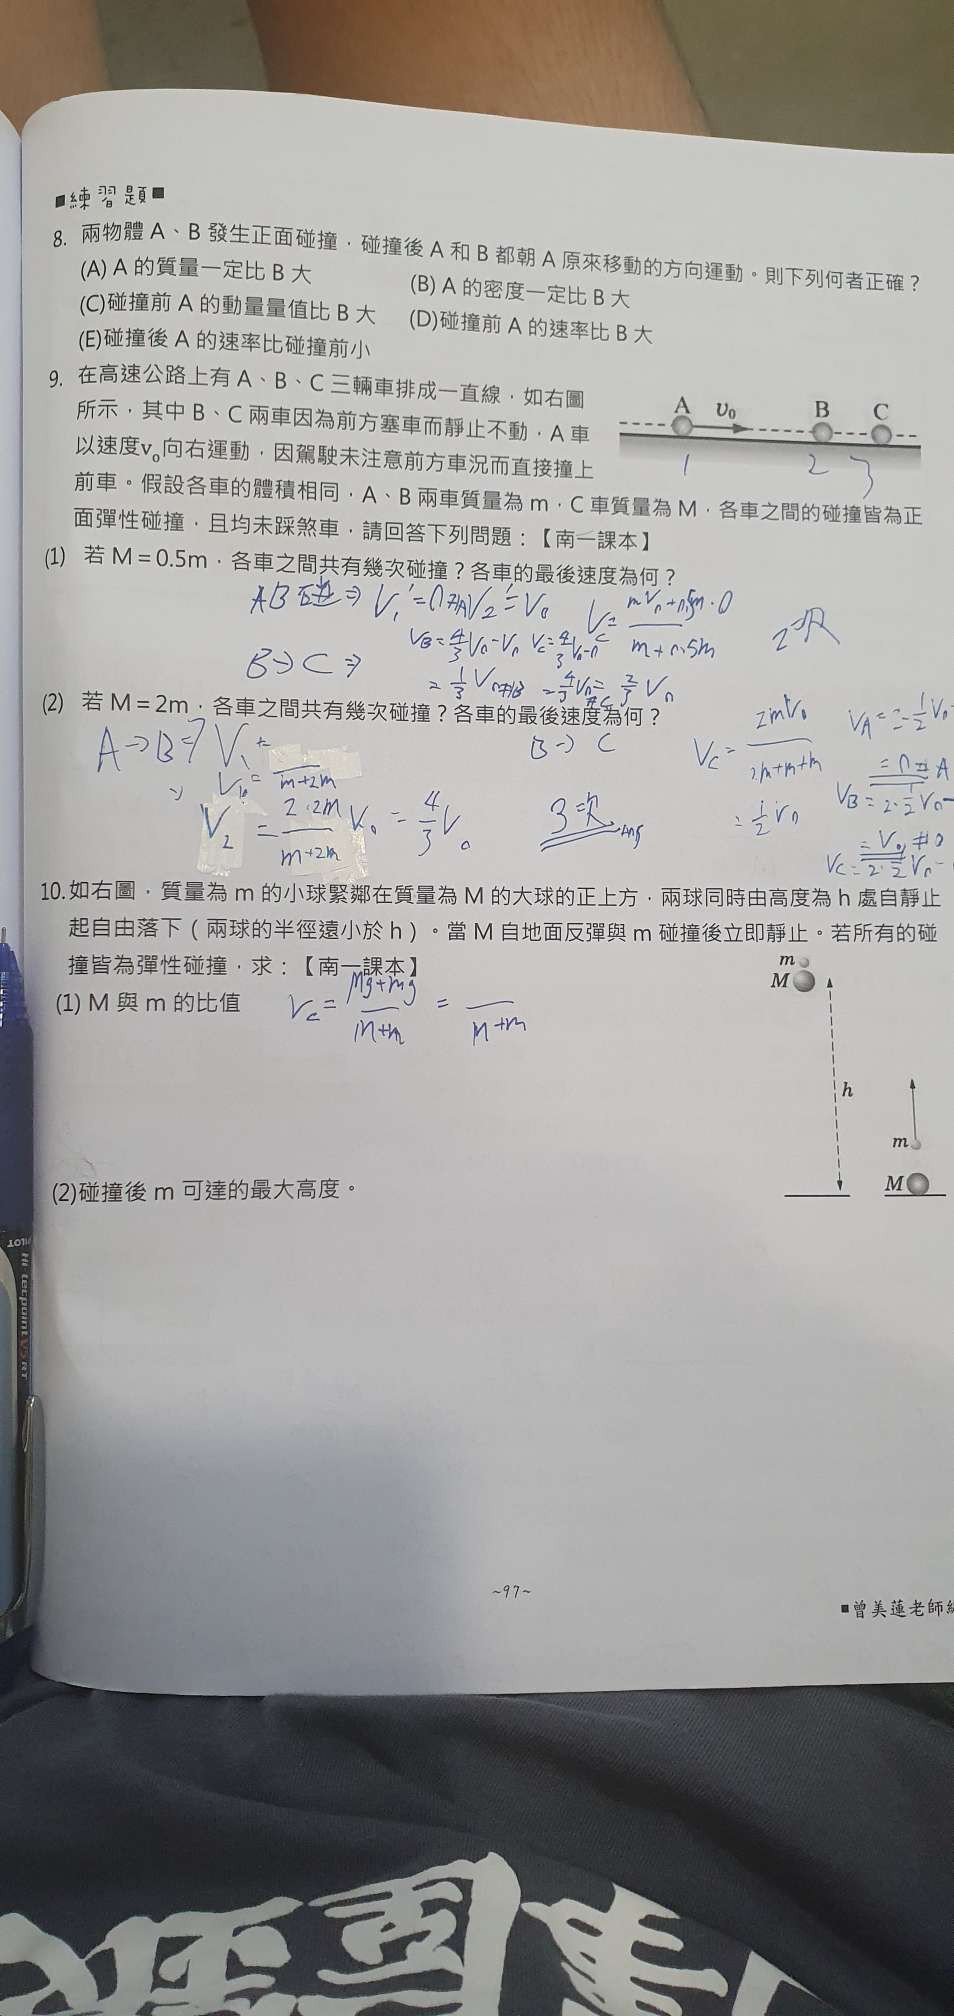 ■練習題■
8. 兩物體 A、B 發生正面碰撞，碰撞後 A 和 B 都朝 A 原來移動的方向運動。則下列何者正確？
(A) A 的質量一定比 B 大 (B) A 的密度一定比 B 大
(C)碰撞前 A 的動量量值比 B 大 (D)碰撞前 A 的速率比 B 大
(E)碰撞後 A 的速率比碰撞前小
9. 在高速公路上有 A、B、C 三輛車排成一直線，如右圖
所示，其中 B、C 兩車因為前方塞車而靜止不動，A 車
以速度v₀向右運動，因駕駛未注意前方車況而直接撞上
前車。假設各車的體積相同，A、B 兩車質量為 m，C 車質量為 M，各車之間的碰撞皆為正
面彈性碰撞，且均未踩煞車，請回答下列問題：【南一課本】
A υ₀ B C
1 2 3
(1) 若 M＝0.5m，各車之間共有幾次碰撞？各車的最後速度為何？
AB碰⇒
B→C⇒
2次
(2) 若 M＝2m，各車之間共有幾次碰撞？各車的最後速度為何？
A→B⇒
m+2m
V₂ = 2·2m/m+2m V₀ = 4/3 V₀
B→C
3次
10.如右圖，質量為 m 的小球緊鄰在質量為 M 的大球的正上方，兩球同時由高度為 h 處自靜止
起自由落下（兩球的半徑遠小於 h）。當 M 自地面反彈與 m 碰撞後立即靜止。若所有的碰
撞皆為彈性碰撞，求：【南一課本】
(1) M 與 m 的比值
Vc = Mg+mg/m+m = /m+m
m
M
h
m
M
(2)碰撞後 m 可達的最大高度。
~97~
■曾美蓮老師
PILOT
Hi-tecpoint V5 RT